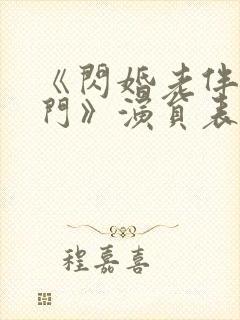 《閃婚老伴
門》演員表
程嘉喜